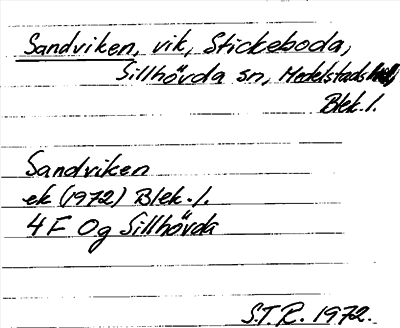 Sandviken, vik, Stickeboda,
Sillhövda sn, Medelstads hd,
Blek. l.
Sandviken
ek (1972) Blek. l.
4 F Og Sillhövda
S.T.R. 1972.